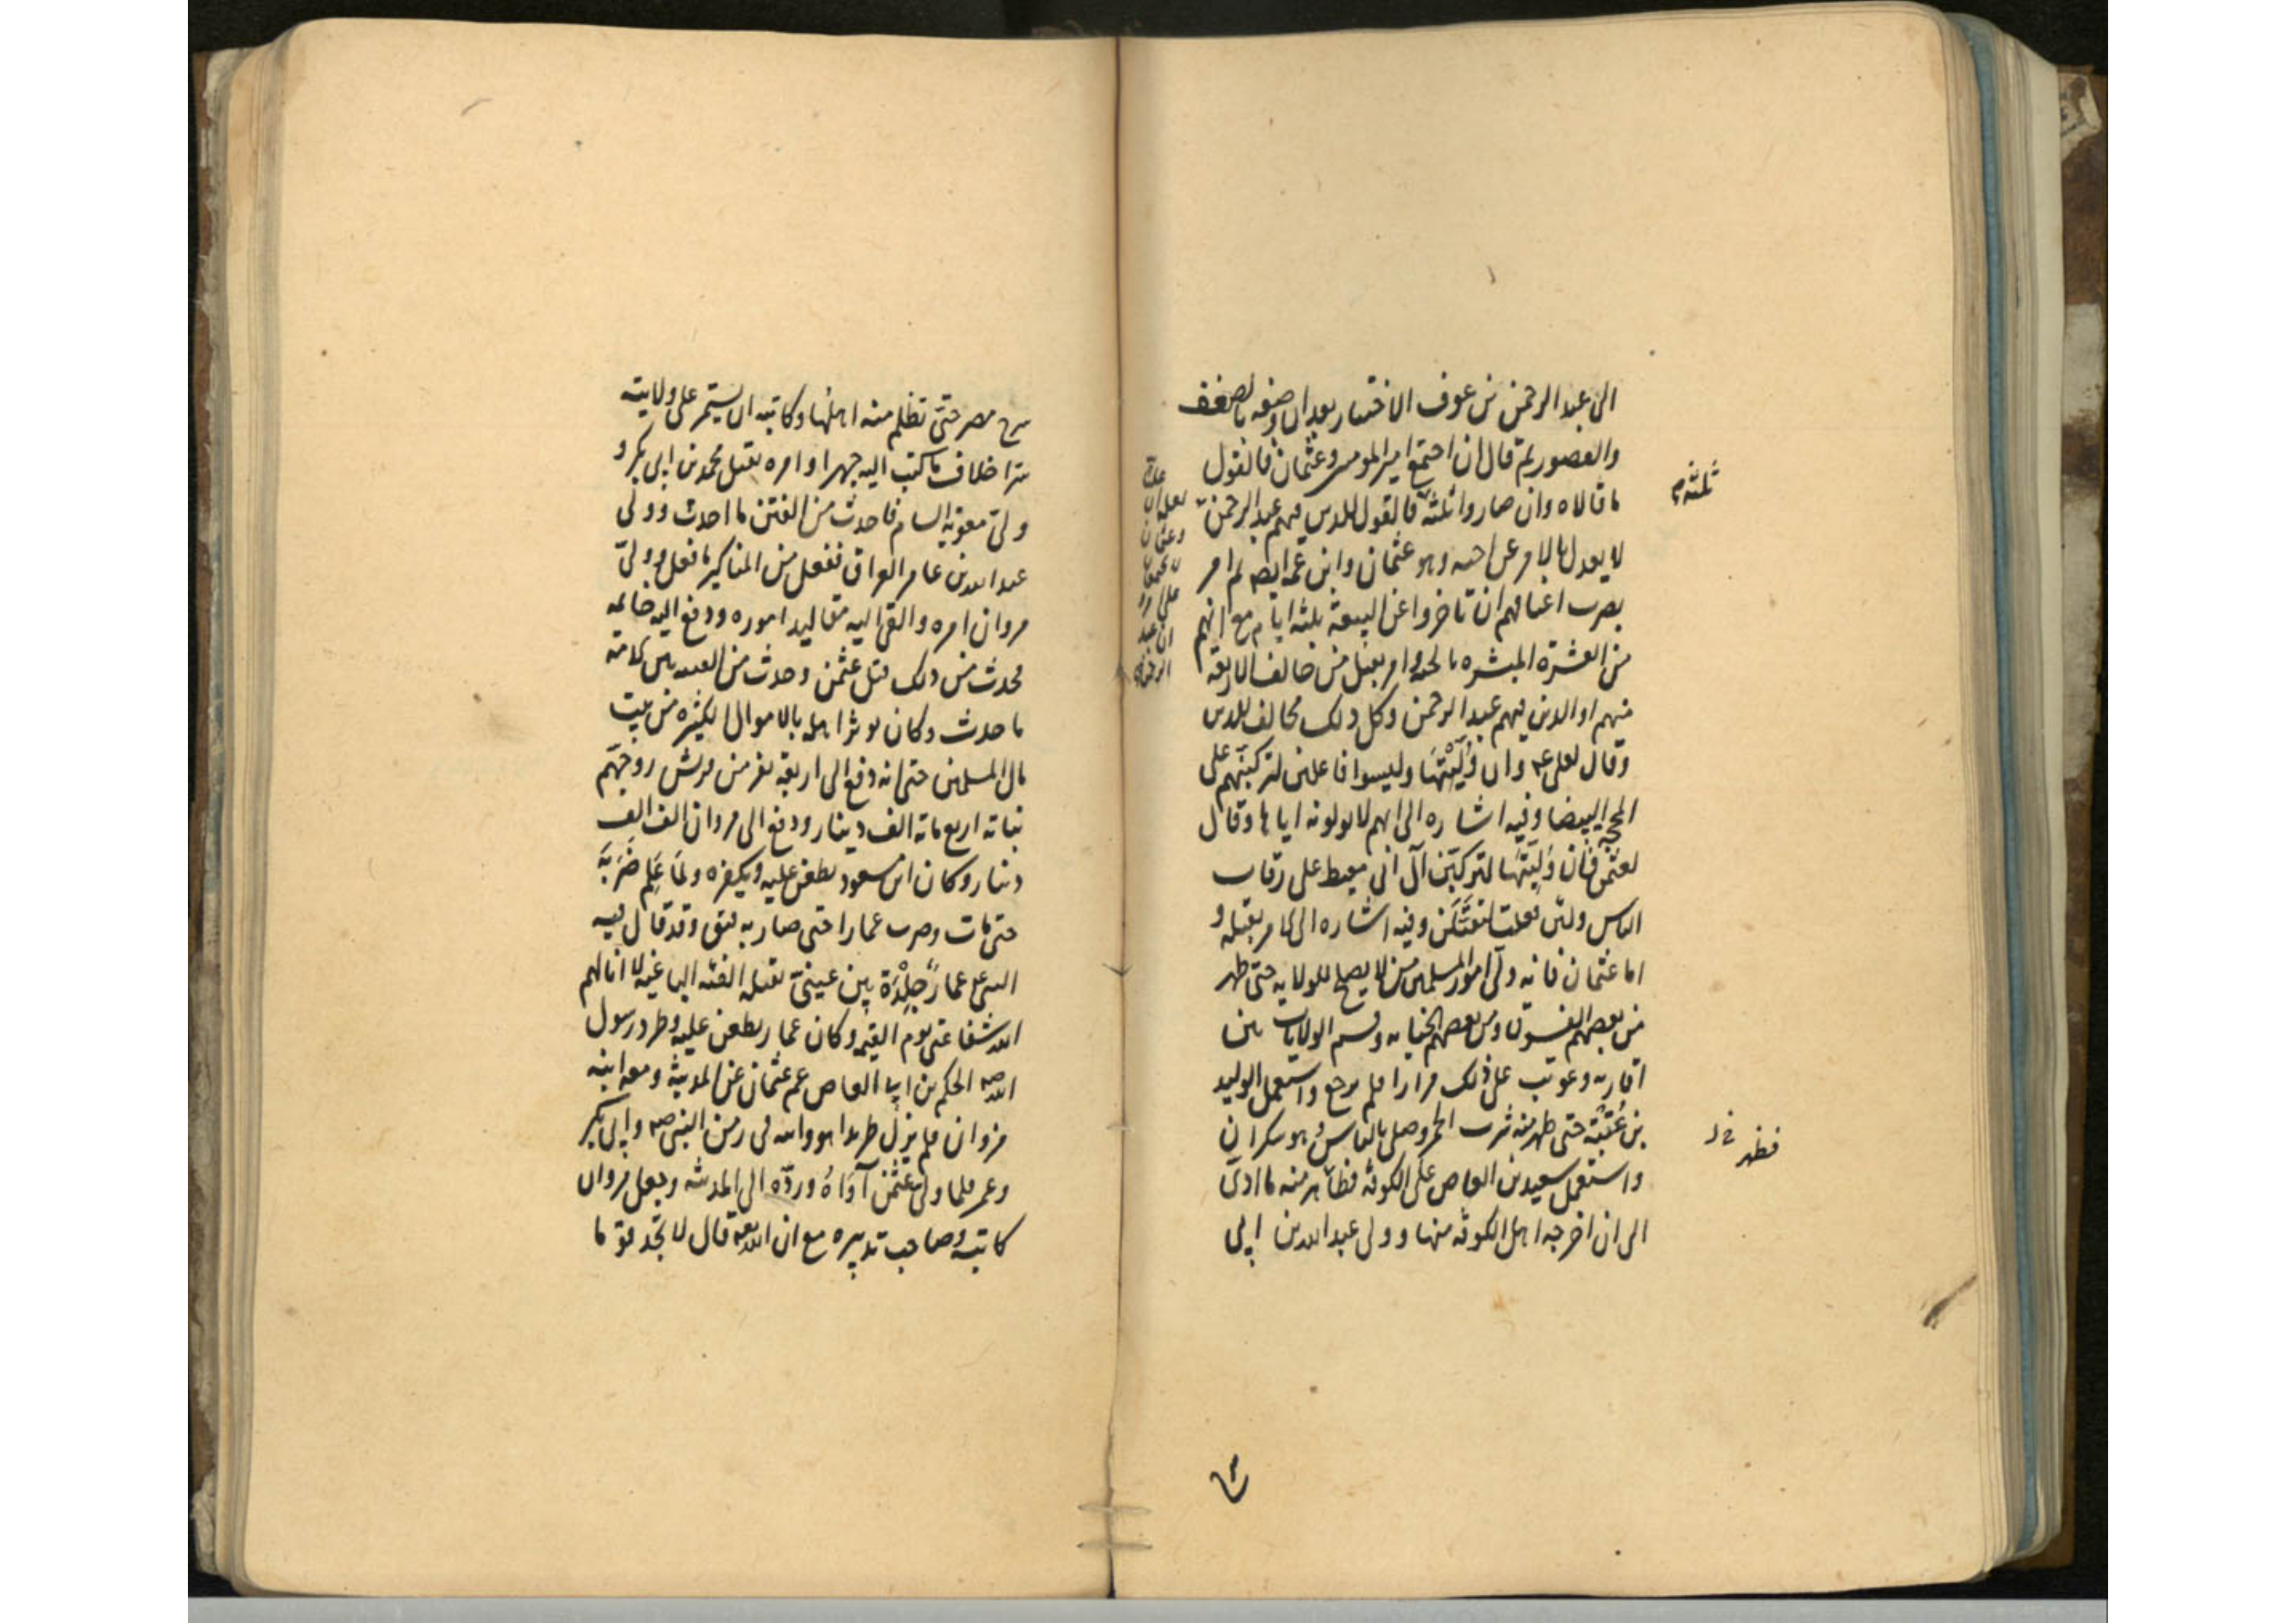 الى عبد الرحمن بن عوف الاختيار بعد ان وصفه بالضعف
والقصور ثم قال ان اجتمع امير المومنين وعثمان فالقول
ما قالاه وان صاروا ثلثة فالقول للذين فيهم عبد الرحمن
لا يعدل بالامر عن اخيه وهو عثمان وابن عمه ايضا ثم امر
بضرب اعناقهم ان تاخروا عن البيعة ثلثة ايام مع انهم
من العشرة المبشرة بالجنة وامر بقتل من خالف الاربعة
منهم او الذين فيهم عبد الرحمن وكل ذلك مخالف للدين
وقال لعلي ع وان وليتها وليسوا فاعلين لتركبنهم على
المحجة البيضا وفيه اشاره الى انهم لا يولونه اياها وقال
لعثمن فان وليتها لتركبن آل ابي معيط على رقاب
الناس ولئن فعلت لتقتلن وفيه اشاره الى الامر بقتله و
اما عثمان فانه ولى امور المسلمين من لا يصلح للولاية حتى ظهر
من بعضهم الفسوق ومن بعضهم الخيانه وقسم الولايات بين
اقاربه وعوتب على ذلك مرارا فلم يرجع واستعمل الوليد
بن عقبة حتى ظهر منه شرب الخمر وصلى بالناس وهو سكران
واستعمل سعيد بن العاص على الكوفة فظاهر منه ما ادى
الى ان اخرجه اهل الكوفه منها وولى عبد الله بن ابي
ثلثه م
فظهر خ ل
سرح مصر حتى تظلم منه اهلها وكاتبه ان يستمر على ولايته
سرا خلاف ما كتب اليه جهرا وامره بقتل محمد بن ابي بكر و
ولى معوية الشام فاحدث من الفتن ما احدث وولى
عبد الله بن عامر العراق ففعل من المناكير ما فعل وولى
مروان امره والقى اليه مقاليد اموره ودفع اليه خاتمه
فحدث من ذلك قتل عثمن وحدث من الفتنه بين الامة
ما حدث وكان يوثر اهله بالاموال الكثيرة من بيت
مال المسلمين حتى انه دفع الى اربعة نفر من قريش زوجهم
بناته اربعمائة الف دينار ودفع الى مروان الف الف
دينار وكان ابن مسعود يطعن عليه ويكفره ولما علم ضربه
حتى مات وضرب عمارا حتى صار به فتق وقد قال فيه
النبي ع عمار جلدة بين عيني تقتله الفئه الباغية لا انالهم
الله شفاعتي يوم القيمة وكان عمار يطعن عليه وطرد رسول
الله ص الحكم بن ابي العاص عم عثمان عن المدينة ومعه ابنه
مروان فلم يزل طريدا هو وابنه في زمن النبي ص وابي بكر
وعمر فلما ولى عثمن آواه وردّه الى المدينه وجعل مروان
كاتبه وصاحب تدبيره مع ان الله تعه قال لا تجد قوما